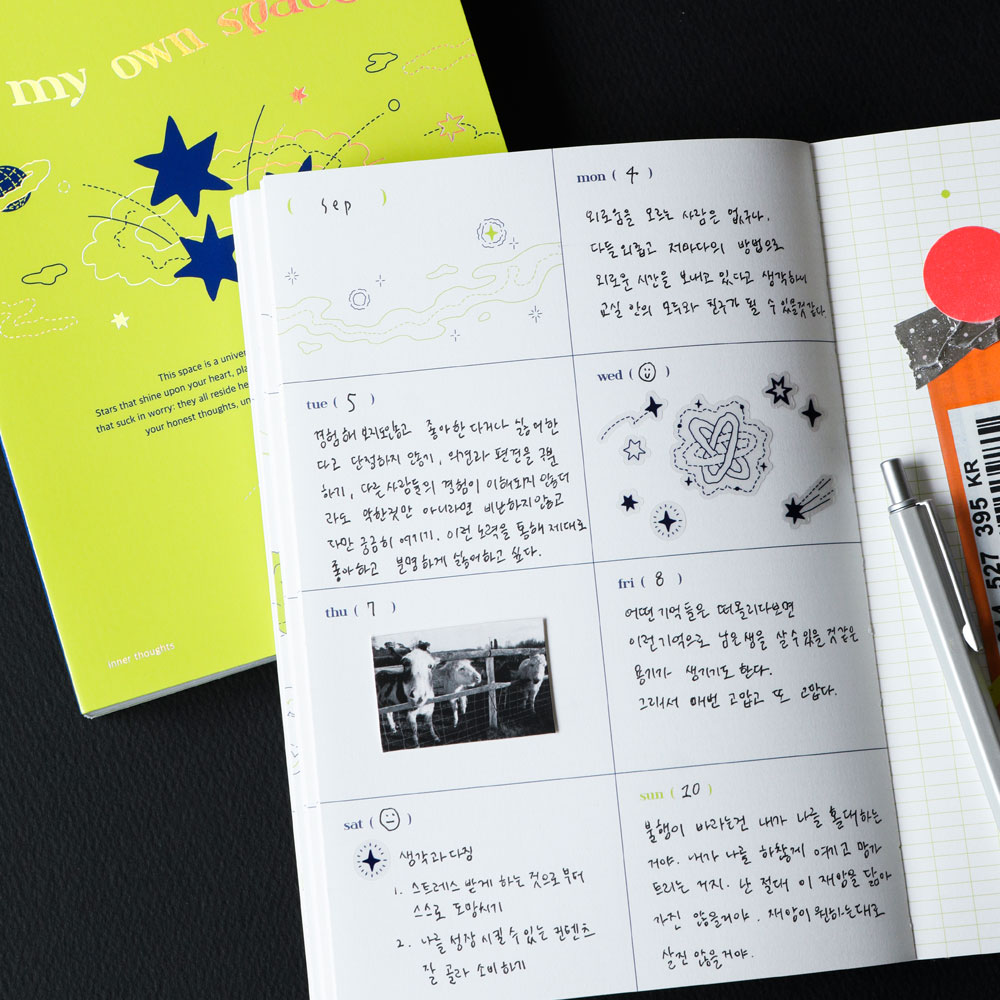 my own space
This space is a univer
Stars that shine upon your heart, pla
that suck in worry: they all reside he
your honest thoughts, un
inner thoughts
( sep )
mon ( 4 )
외로움을 모르는 사람은 없구나.
다들 외롭고 저마다의 방법으로
외로운 시간을 보내고 있다고 생각하니
교실 안의 모두와 친구가 될 수 있을것같다.
tue ( 5 )
경험해 보지도않고 좋아한다거나 싫어한
다고 단정하지 않기, 의견과 편견을 구분
하기, 다른 사람들의 경험이 이해되지 않더
라도 악한것만 아니라면 비난하지않고
다만 궁금히 여기기. 이런 노력을 통해 제대로
좋아하고 분명하게 싫어하고 싶다.
wed ( )
thu ( 7 )
fri ( 8 )
어떤 기억들은 떠올리다보면
이런 기억으로 남은생을 살 수 있을 것 같은
용기가 생기기도 한다.
그래서 매번 고맙고 또 고맙다.
sat ( )
생각과 다짐
1. 스트레스 받게 하는 것으로부터
스스로 도망치기
2. 나를 성장 시킬 수 있는 컨텐츠
잘 골라 소비하기
sun ( 10 )
불행이 바라는건 내가 나를 홀대하는
거야. 내가 나를 하찮게 여기고 망가
트리는 거지. 난 절대 이 재앙을 닮아
가진 않을거야. 재앙이 원하는대로
살진 않을거야.
527 395 KR